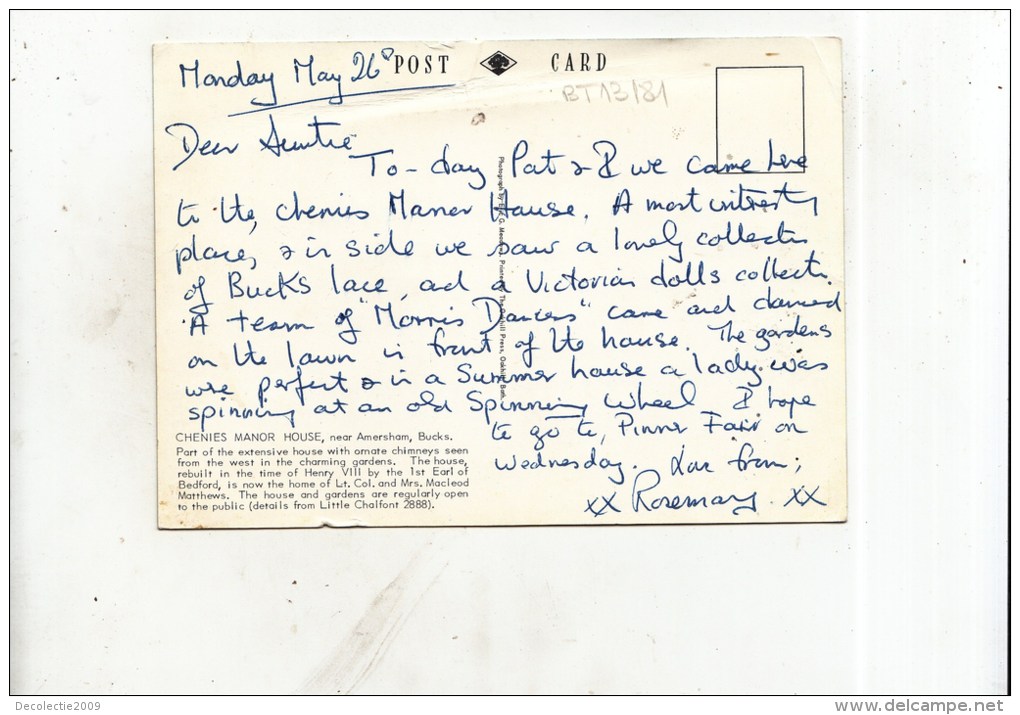 Monday May 26
POST CARD
BT13/81
Dear Auntie
To-day Pat & I we came here
to the, Chenies Manor House. A most
place, & in side we saw a lovely
of Bucks lace, and a Victorian dolls
A team of "Morris Dancers" came and danced
on the lawn in front of the house. The gardens
were perfect & in a Summer house a lady was
spinning at an old Spinning Wheel I hope
to go to, Pinner Fair on
Wednesday. Love from;
xx Rosemary. xx
CHENIES MANOR HOUSE, near Amersham, Bucks.
Part of the extensive house with ornate chimneys seen
from the west in the charming gardens. The house,
rebuilt in the time of Henry VIII by the 1st Earl of
Bedford, is now the home of Lt. Col. and Mrs. Macleod
Matthews. The house and gardens are regularly open
to the public (details from Little Chalfont 2888).
Photograph by G. Printed Press, Bath.
Decolectie2009
www.delcampe.net